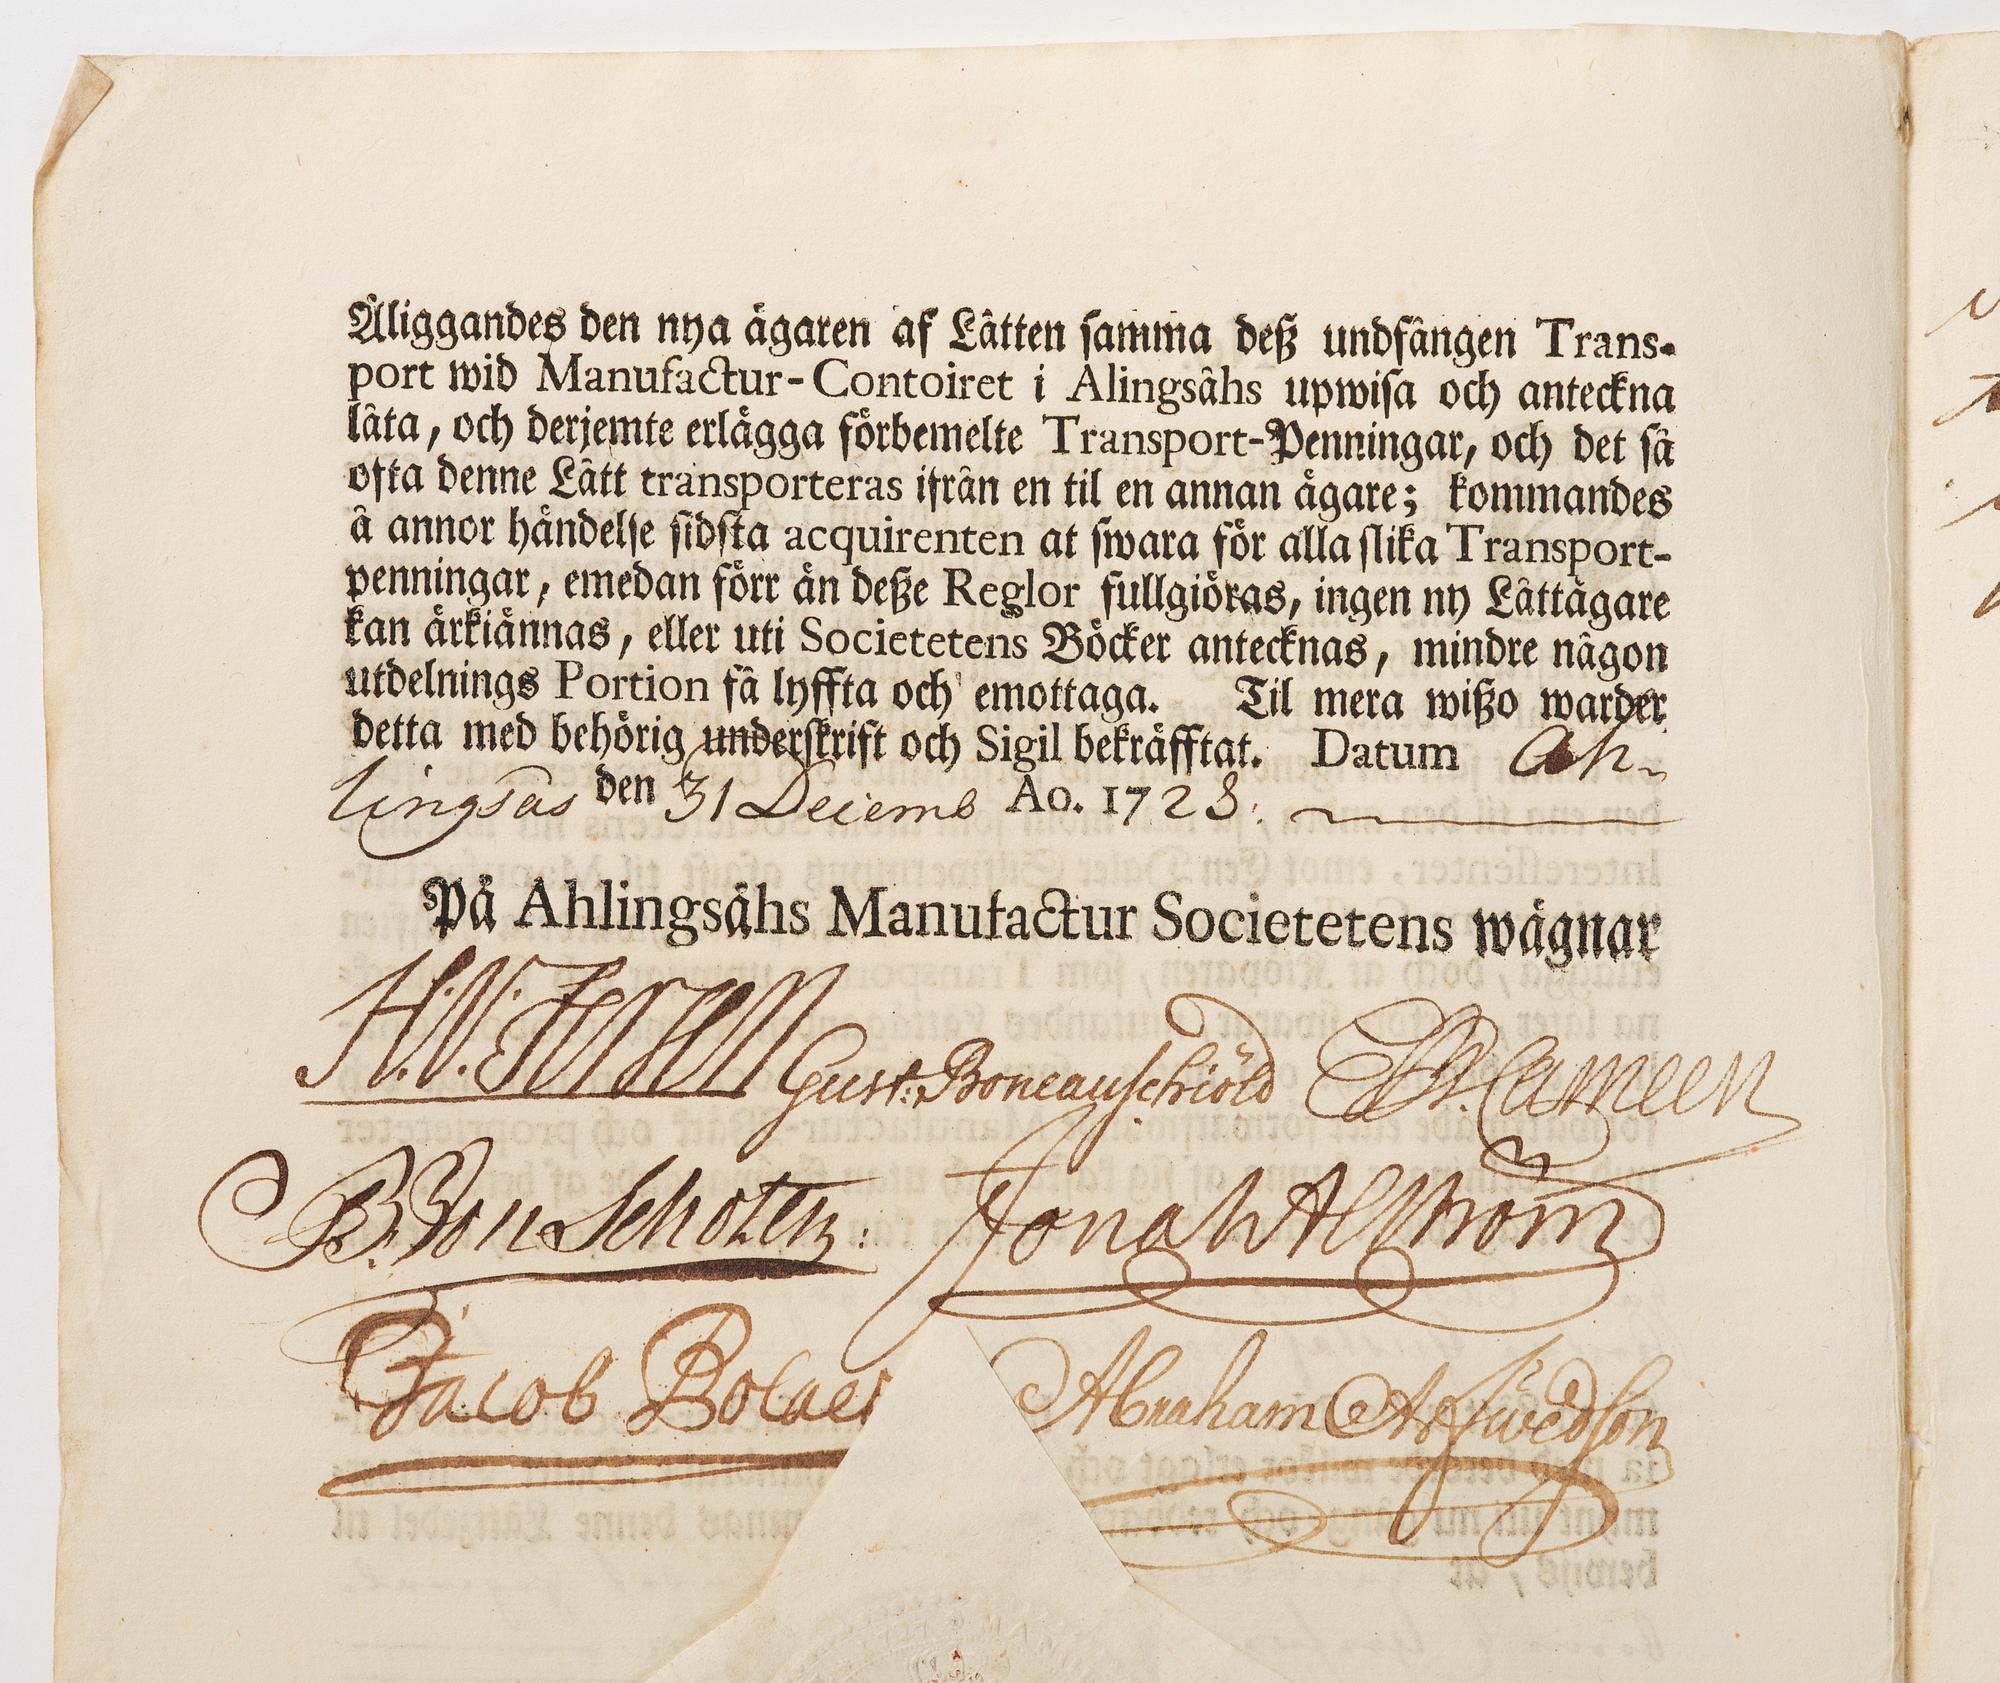 Åliggandes den nya ägaren af Låtten samma deß undfången Trans-
port wid Manufactur-Contoiret i Alingsåhs upwisa och anteckna
låta, och derjemte erlägga förbemelte Transport-Penningar, och det så
ofta denne Lått transporteras ifrån en til en annan ägare; kommandes
å annor händelse sidsta acquirenten at swara för alla slika Transport-
penningar, emedan förr än deße Reglor fullgiöras, ingen ny Låttägare
kan ärkiännas, eller uti Societetens Böcker antecknas, mindre någon
utdelnings Portion få lyffta och emottaga. Til mera wißo warder
detta med behörig underskrift och Sigil bekräfftat. Datum Ah-
lingsås den 31 Decemb Ao. 1728.
På Ahlingsåhs Manufactur Societetens wägnar
H.W. Gust: Boneauschiöld Cameen
B. Von Schoten: Jonas Alström
Jacob Abraham Arfwedson